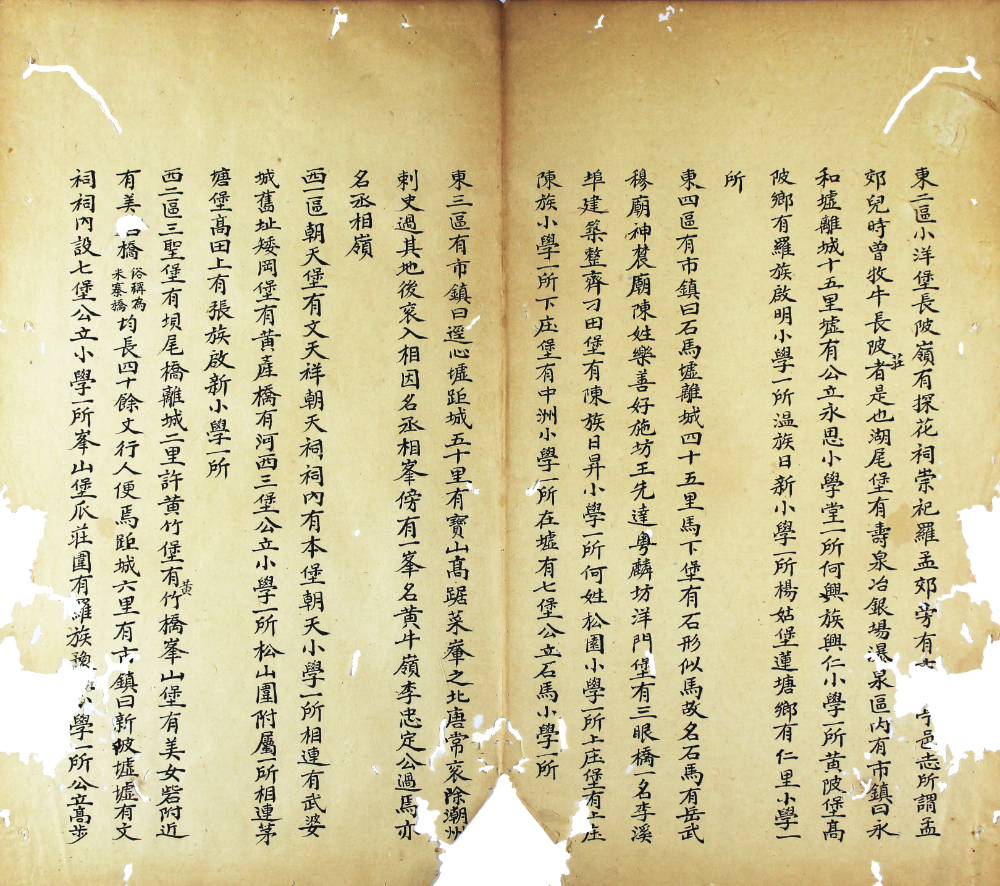 東二區小洋堡長陂嶺有探花祠崇祀羅孟郊旁有邑志所謂孟
郊兒時曾牧牛長陂莊者是也湖尾堡有壽泉冶銀場瀑泉區內有市鎮曰永
和墟離城十五里墟有公立永思小學堂一所何興族興仁小學一所黃陂堡高
陂鄉有羅族啟明小學一所溫族日新小學一所楊姑堡蓮塘鄉有仁里小學一
所
東四區有市鎮曰石馬墟離城四十五里馬下堡有石形似馬故名石馬有岳武
穆廟神農廟陳姓樂善好施坊王先達粵麟坊洋門堡有三眼橋一名李溪
埠建築整齊刁田堡有陳族日昇小學一所何姓松園小學一所上庄堡有上庄
陳族小學一所下庄堡有中洲小學一所在墟有七堡公立石馬小學一所
東三區有市鎮曰逕心墟距城五十里有寶山高踞菜峯之北唐常袞除潮州
刺史過其地後袞入相因名丞相峯傍有一峯名黃牛嶺李忠定公過焉亦
名丞相嶺
西一區朝天堡有文天祥朝天祠祠內有本堡朝天小學一所相連有武婆
城舊址矮岡堡有黃產橋有河西三堡公立小學一所松山圍附屬一所相連茅
塘堡高田上有張族啟新小學一所
西二區三聖堡有垻尾橋離城二里許黃竹堡有黃竹橋峯山堡有美女砦附近
有美橋俗稱為米寨橋均長四十餘丈行人便焉距城六里有古鎮曰新陂墟墟有文
祠祠內設七堡公立小學一所峯山堡瓜莊圍有羅族學一所公立高步